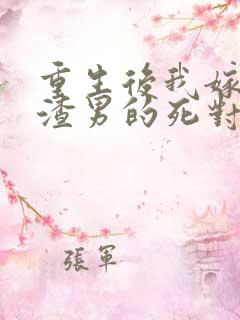 重生後我嫁
渣男的死對
張軍